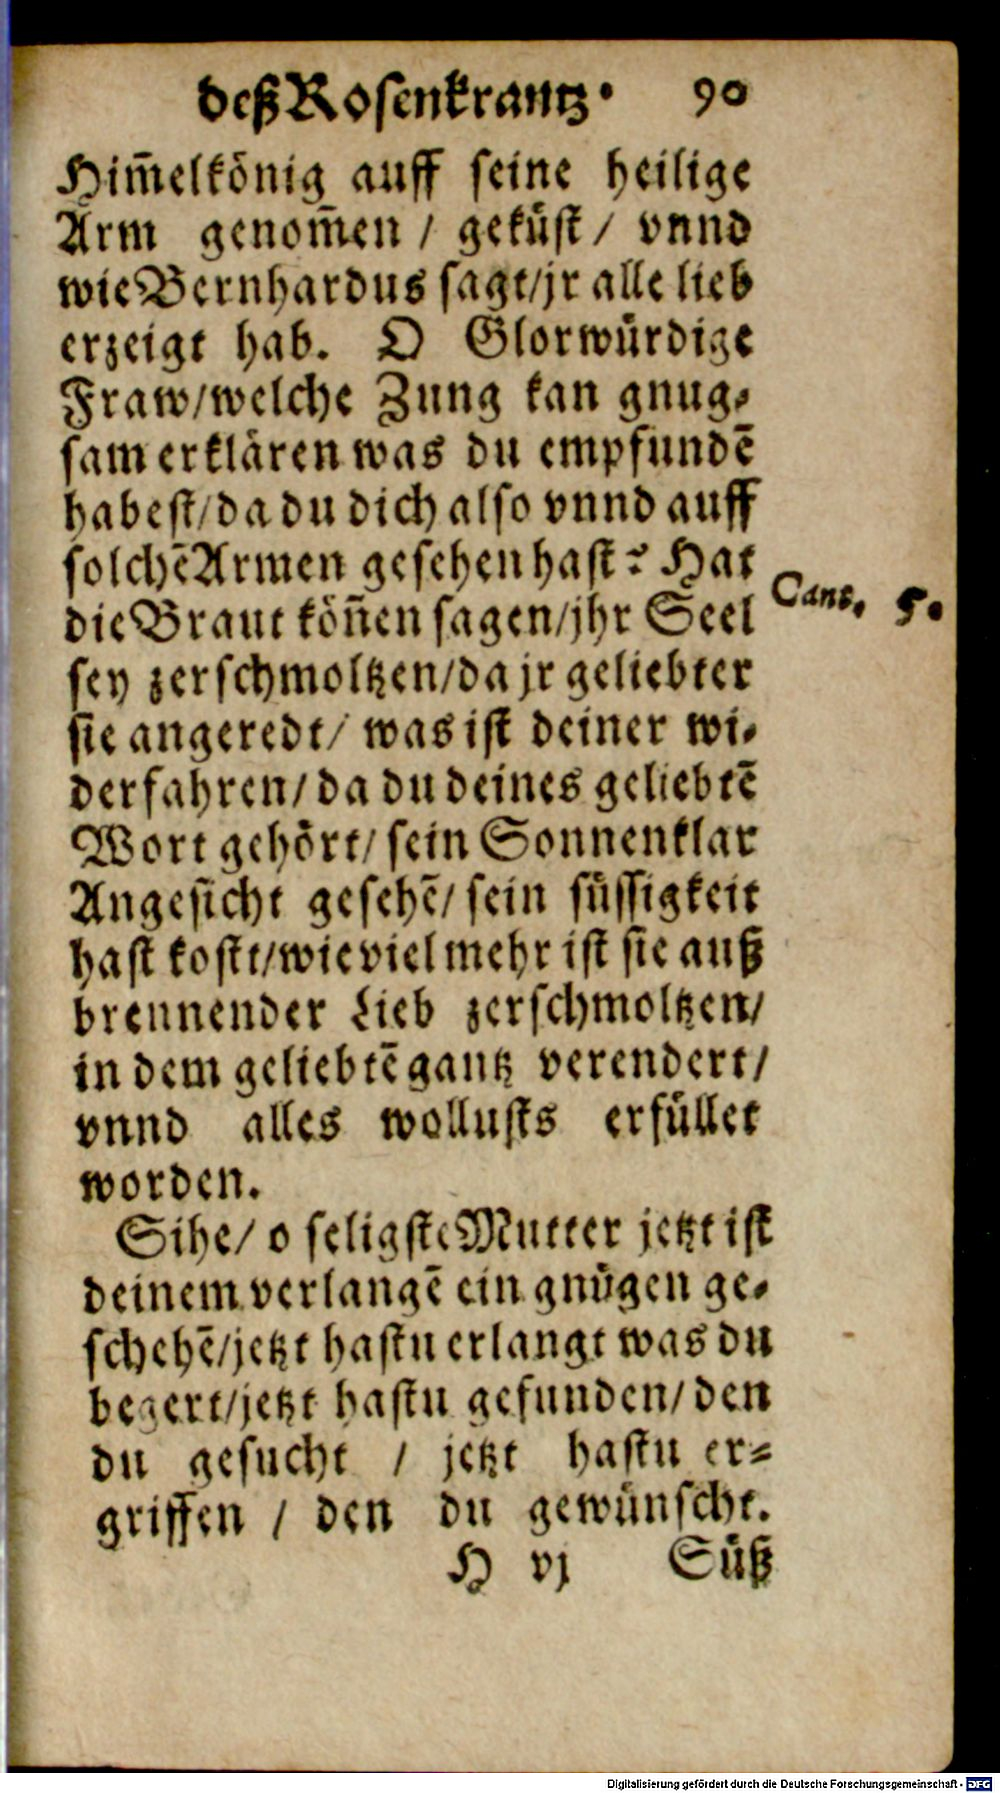 deß Rosenkrantz. 90
Him̃elkönig auff seine heilige
Arm genom̃en / geküst / vnnd
wie Bernhardus sagt/jr alle lieb
erzeigt hab. O Glorwürdige
Fraw/welche Zung kan gnug-
sam erklären was du empfundē
habest/da du dich also vnnd auff
solchē Armen gesehen hast? Hat
die Braut köñen sagen/jhr Seel
Cant. 5.
sey zerschmoltzen/da jr geliebter
sie angeredt/ was ist deiner wi-
derfahren/da du deines geliebtē
Wort gehört/sein Sonnenklar
Angesicht gesehē/sein süssigkeit
hast kostt/wie viel mehr ist sie auß
brennender Lieb zerschmoltzen/
in dem geliebtē gantz verendert/
vnnd alles wollusts erfüllet
worden.
Sihe/ o seligste Mutter jetzt ist
deinem verlangē ein gnügen ge-
schehē/jetzt hastu erlangt was du
begert/jetzt hastu gefunden/den
du gesucht / jetzt hastu er-
griffen / den du gewünscht.
H vj Süß
Digitalisierung gefördert durch die Deutsche Forschungsgemeinschaft - DFG